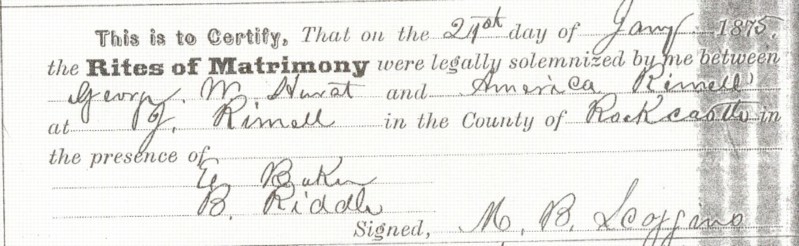 This is to Certify, That on the 21st day of Jany 1875.
the Rites of Matrimony were legally solemnized by me between
George M. Hurst and America Rimell
at J. Rimell in the County of Rockcastle in
the presence of
E Baker
B. Riddle
Signed, M. B. Scoggins